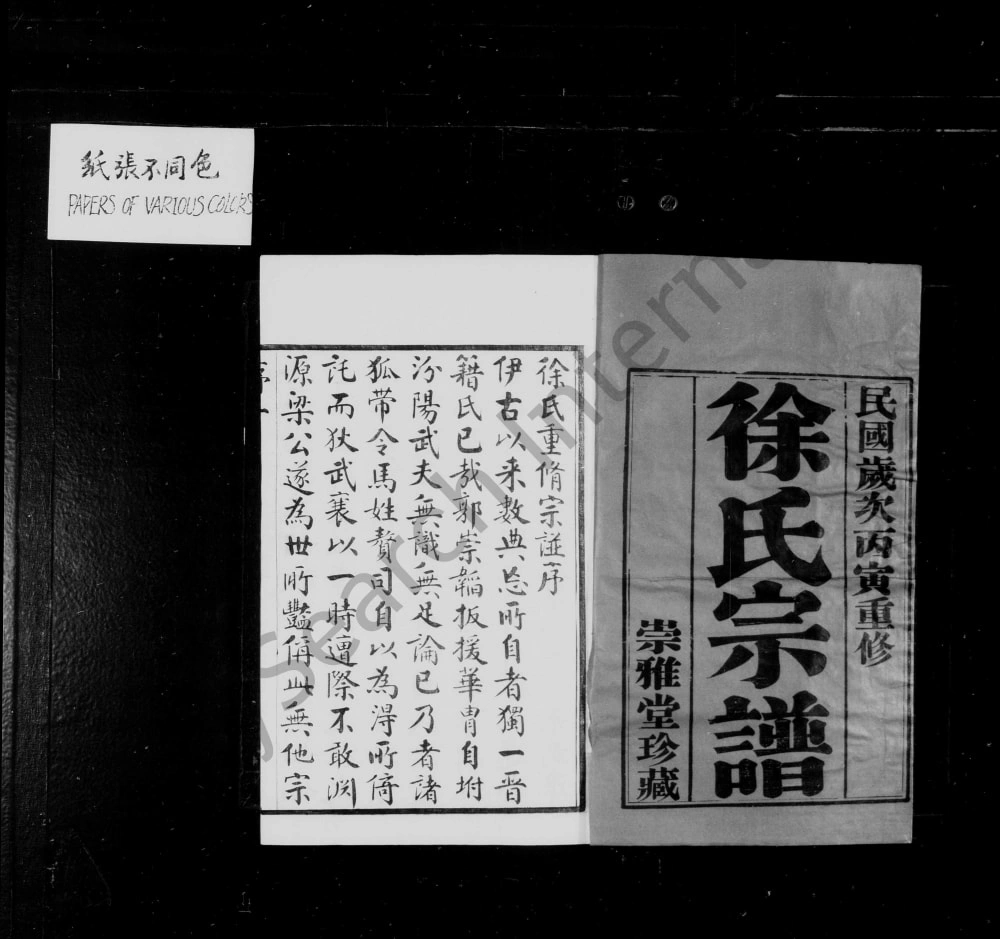 紙張不同色
PAPERS OF VARIOUS COLORS
民國歲次丙寅重修
徐氏宗譜
崇雅堂珍藏
徐氏重脩宗譜序
伊古以来數典忘所自者獨一晋
籍氏已哉郭崇韜扳援華胄自坿
汾陽武夫無識無足論已乃者諸
狐帶令馬姓賛司自以為淂所倚
託而狄武襄以一時遭際不敢淵
源梁公遂為世所豔偁此無他宗